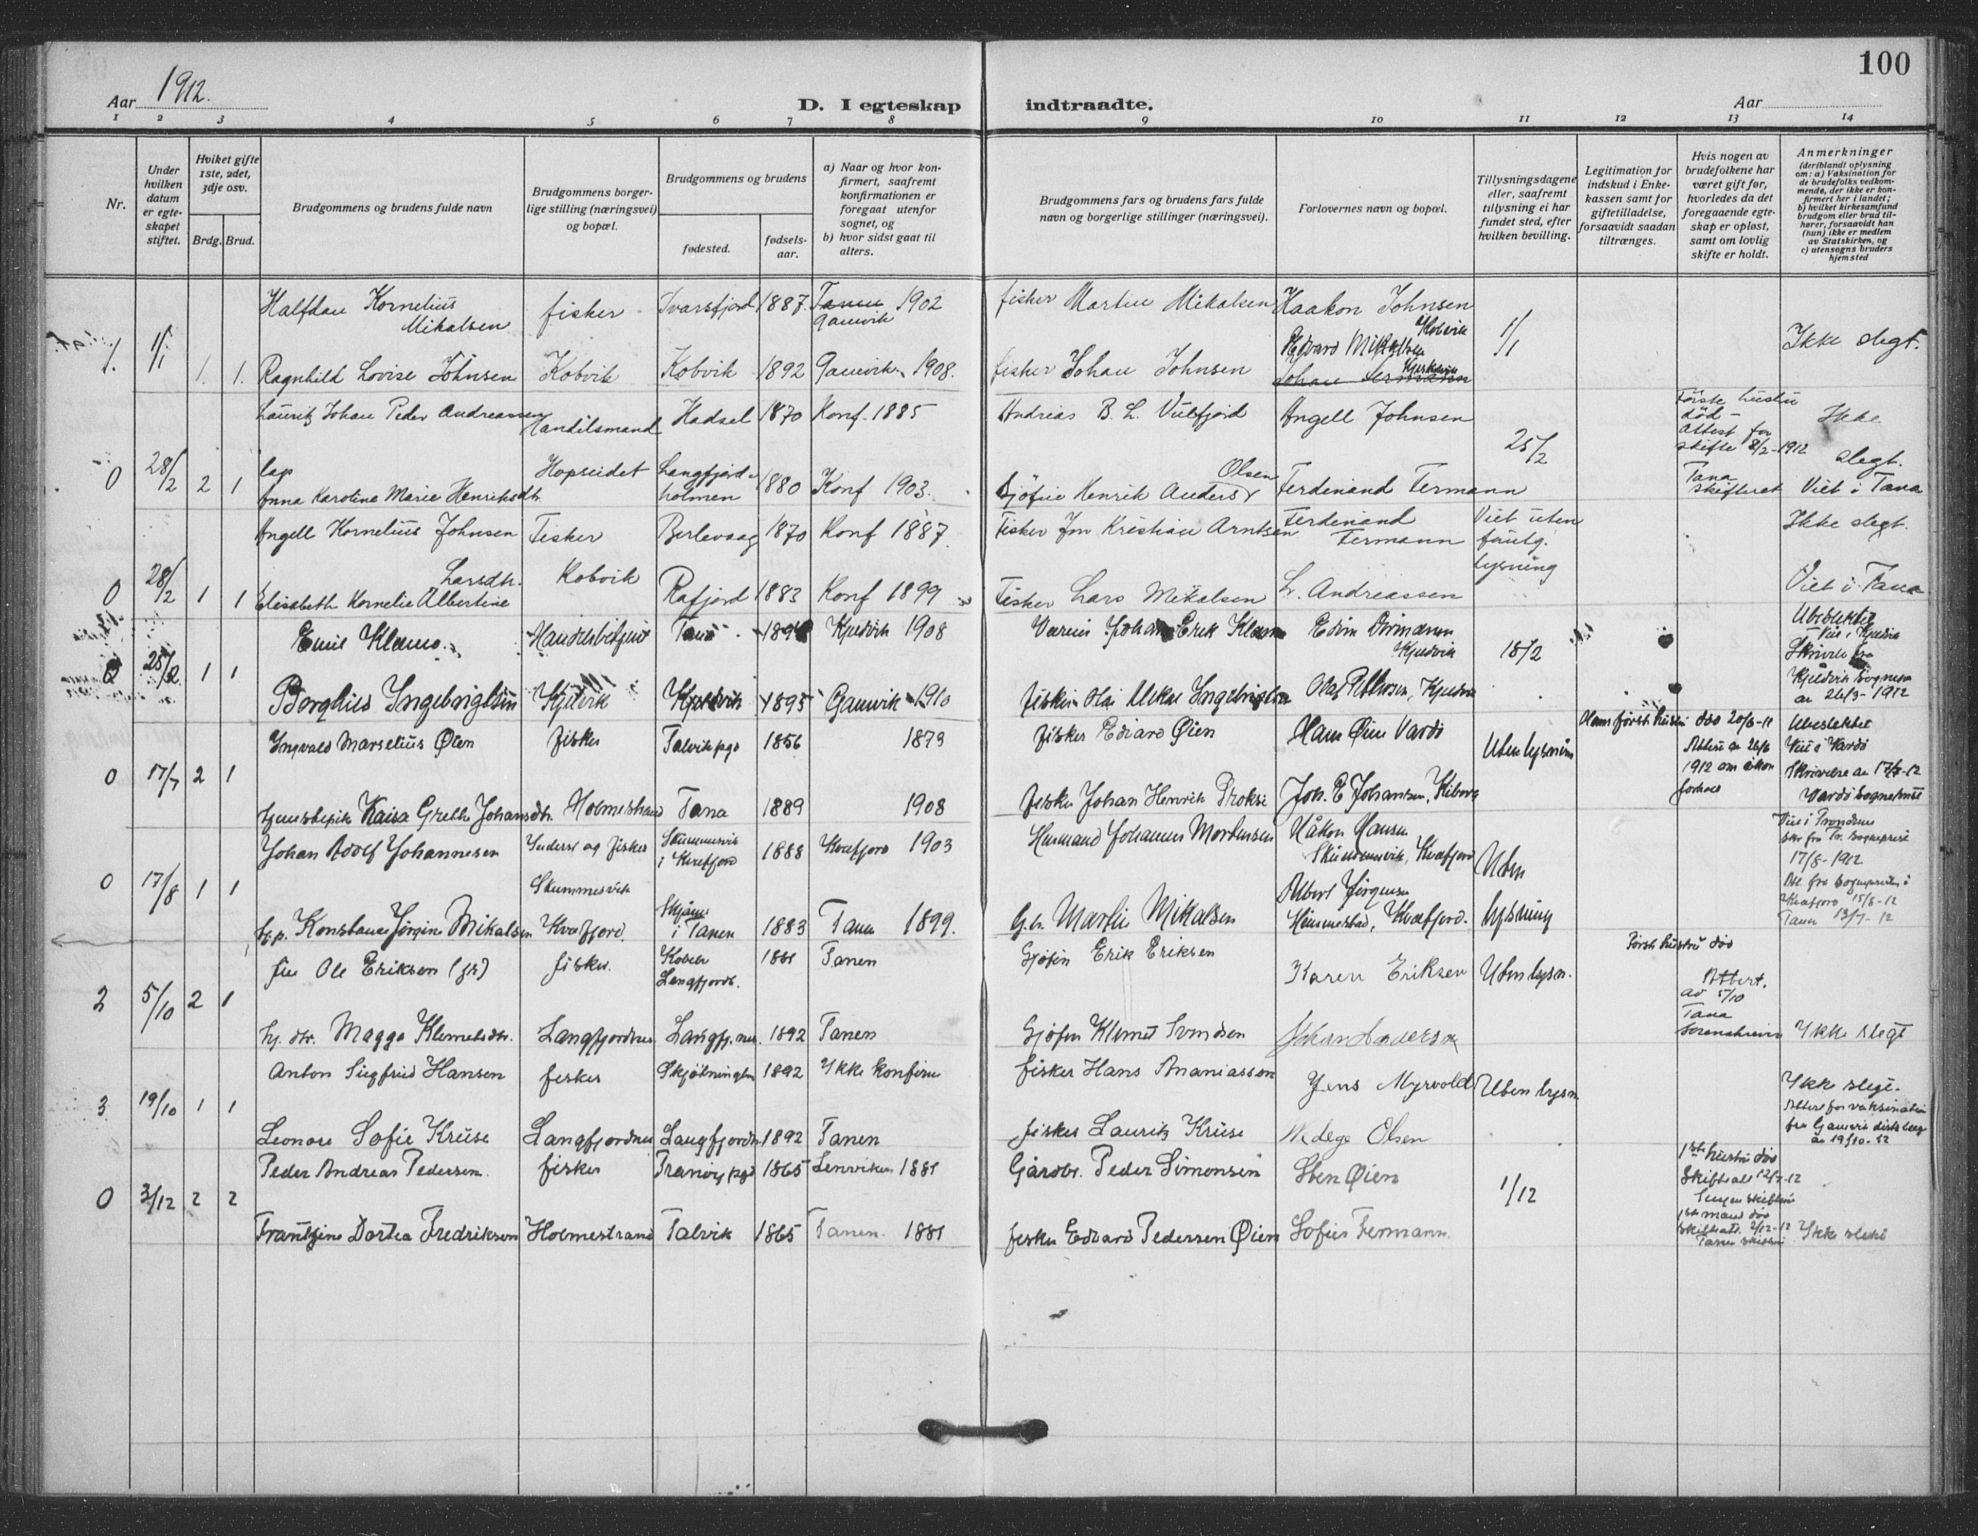 100
Aar 1912.
D. I egteskap indtraadte.
Aar
1 2 3 4 5 6 7 8 9 10 11 12 13 14
Nr.
Under hvilken datum er egteskapet stiftet.
Hvilket gifte 1ste, 2det, 3dje osv.
Brdg. Brud.
Brudgommens og brudens fulde navn
Brudgommens borgerlige stilling (næringsvei) og bopæl.
Brudgommens og brudens
fødested.
fødselsaar.
a) Naar og hvor konfirmert, saafremt konfirmationen er foregaat utenfor sognet, og
b) hvor sidst gaat til alters.
Brudgommens fars og brudens fars fulde navn og borgerlige stillinger (næringsvei).
Forlovernes navn og bopæl.
Tillysningsdagene eller, saafremt tillysning ei har fundet sted, efter hvilken bevilling.
Legitimation for indskud i Enkekassen samt for giftetilladelse, forsaavidt saadan tiltrænges.
Hvis nogen av brudefolkene har været gift før, hvorledes da det foregaaende egteskap er opløst, samt om lovlig skifte er holdt.
Anmerkninger (deriblandt oplysning om: a) Vaksination for de brudefolks vedkommende, der ikke er konfirmert her i landet; b) hvilket kirkesamfund brudgom eller brud tilhører, forsaavidt han (hun) ikke er medlem av Statskirken, og c) utensogns bruders hjemsted
Halfdan Kornelius Mikalsen fisker Ivarsfjord 1887 Tanen 1902 Gamvik fisker Martin Mikalsen Haakon Johnsen Kobvik
1. 1/1 1. 1. Edvard Mikalsen 1/1 Ikke slegt.
Ragnhild Lovise Johnsen Kobvik Kobvik 1892 Gamvik 1908. fisker Johan Johnsen Johan Fermann
Lauritz Johan Peder Andreassen Handelsmand Hadsel 1870 Konf. 1885 Andreas B. L. Vulfjord Angell Johnsen Første hustru død - Attest for skifte 8/2-1912 Tana skifteret Ikke slegt.
0 28/2 2 1 lap Hopseidet 25/2
Anna Karoline Marie Henriksdt. Langfjordholmen 1880 Konf 1903. Sjøfin Henrik Anders Olsen Ferdinand Fermann Viet i Tana
Angell Kornelius Johnsen Fisker Berlevaag 1870 Konf 1887. Fisker Jon Kristian Arntsen Ferdinand Fermann Viet uten lysning Ikke slegt.
0 28/2 1 1 Larsdtr. Kobvik
Elisabeth Kornelie Albertine Rafjord 1883 Konf 1899 Fisker Lars Mikalsen L. Andreassen Viet i Tana
Emil Klemo Handelsbetjent Tana Kjelvik 1908 Johan Erik Klemo Kjelvik 18/2 Ubeslektet
0 25/2 1 1 Skrivelse fra Kjelvik sogneprest
Borghild Ingebrigtsen Kjelvik Kjelvik 1895 Gamvik 1910 fisker Ole Mikal Ingebrigtsen Olaf Pettersen, Kjelvik av 26/3-1912
Ingvald Marselius Øien fisker Talvik pgd 1856 1873 fisker Edvard Øien Hans Øien Vardø Uten lysning Hans første hustru død 20/5-11 Attest av 26/6 1912 om skifte Ubeslektet Viet i Vardø
0 17/7 2 1 Skrivelse av 17/7-12
Kaisa Grethe Johansdtr. Holmestrand Tana 1889 1908 fisker Johan Henrik Proksi Joh. E. Johansen, Kiberg Vardø sogneprest
Johan Adolf Johannesen Inderst og fisker Skummesvik i Kvæfjord 1888 Kvæfjord 1903 Husmand Johannes Mortensen Håkon Hansen Skummesvik, Kvæfjord Uten Viet i Trondenes
0 17/8 1 1 Skummesvik 17/8-1912
Konstanse Jørgine Mikalsen Kvæfjord. i Tanen 1883 Tanen 1899. Martin Mikalsen Albert Jørgensen Kvæfjord. lysning Kvæfjord 15/8-12 Tanen 13/7-12
fin Ole Eriksen (jr) fisker. Langfjordb. 1881 Tanen Sjøfin Erik Eriksen Karen Eriksen Uten lysn. Første hustru død
2 5/10 2 1 Attest. av 5/10 Tana
hj. dtr. Magga Klemetsdtr. Langfjordnes Langfj.nes 1892 Tanen Sjøfin Klemet Svendsen Johan Andersen Sorenskriver Ikke slegt
Anton Siegfried Hansen fisker Skjøtningberg 1892 Ikke konfirm fisker Hans Ananiassen Jens Myrvold Uten lysn Ikke slegt.
3 19/10 1 1 Attest for vaksination
Leonore Sofie Kruse Langfjordnes Langfjordn 1892 Tanen fisker Lauritz Kruse Medege Olsen av 19/10-12
Peder Andreas Pedersen. fisker Tranøy pgd 1865 Lenviken 1881 Gårdbr. Peder Simonsen Sten Øien 1ste hustru død
0 3/12 2 2 1/12 1ste mand død
Frantzine Dortea Fredriksen Holmestrand Talvik 1865 Tanen. 1881 fisker Edvard Pedersen Øien Sofus Fermann. Ikke slekt